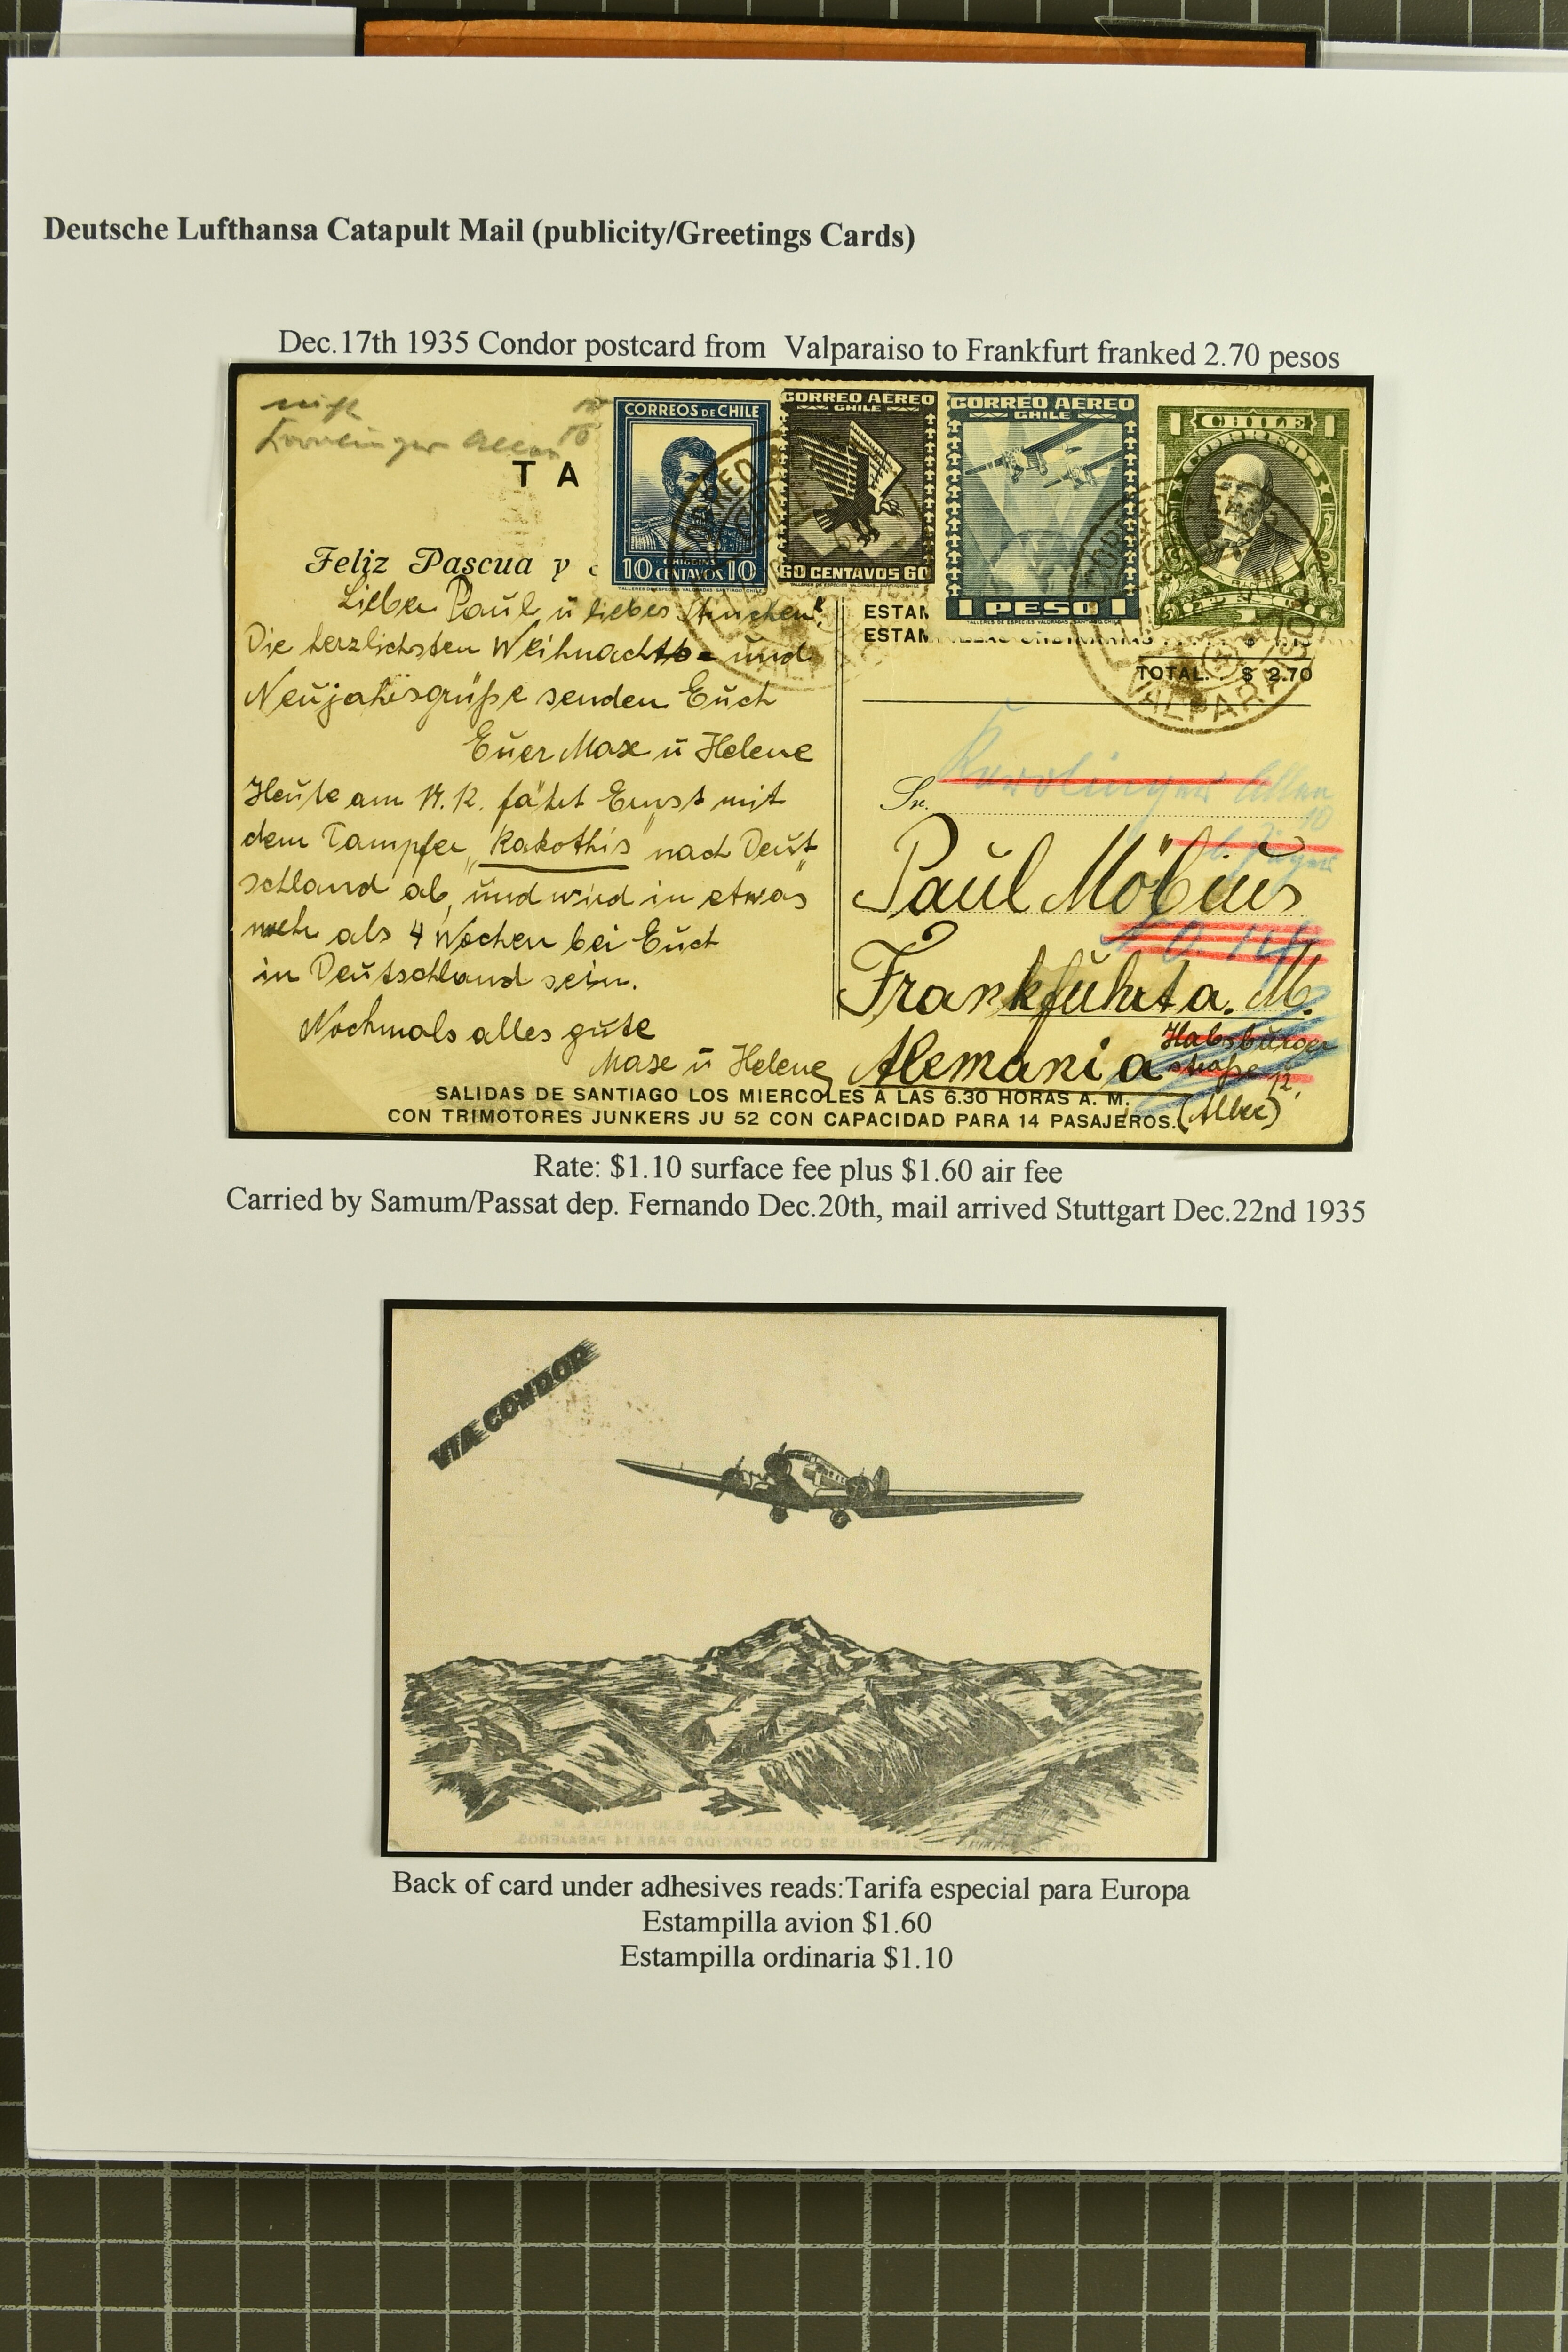 Deutsche Lufthansa Catapult Mail (publicity/Greetings Cards)
Dec.17th 1935 Condor postcard from Valparaiso to Frankfurt franked 2.70 pesos
T A
CORREOS DE CHILE
O'HIGGINS
10 CENTAVOS 10
CORREO AEREO
CHILE
60 CENTAVOS 60
CORREO AEREO
CHILE
1 PESO 1
1 CHILE 1
CORREOS
Feliz Pascua y
Lieber Paul ü liebes
Die herzlichsten Weihnachts- und
Neujahrsgrüße senden Euch
Euer Maxe ü Helene
Heute am 17.12. fährt Ernst mit
dem Dampfer „Rakothis" nach Deut
schland ab, und wird in etwas
mehr als 4 Wochen bei Euch
in Deutschland sein.
Nochmals alles gute
Maxe ü Helene
ESTAM
ESTAM
TOTAL. $ 2.70
VALPARA
Sr.
Paul Möbius
Frankfuhrt a. M.
Alemania
Habsburger
straße 12.
SALIDAS DE SANTIAGO LOS MIERCOLES A LAS 6.30 HORAS A. M.
CON TRIMOTORES JUNKERS JU 52 CON CAPACIDAD PARA 14 PASAJEROS.
Rate: $1.10 surface fee plus $1.60 air fee
Carried by Samum/Passat dep. Fernando Dec.20th, mail arrived Stuttgart Dec.22nd 1935
VIA CONDOR
Back of card under adhesives reads:Tarifa especial para Europa
Estampilla avion $1.60
Estampilla ordinaria $1.10